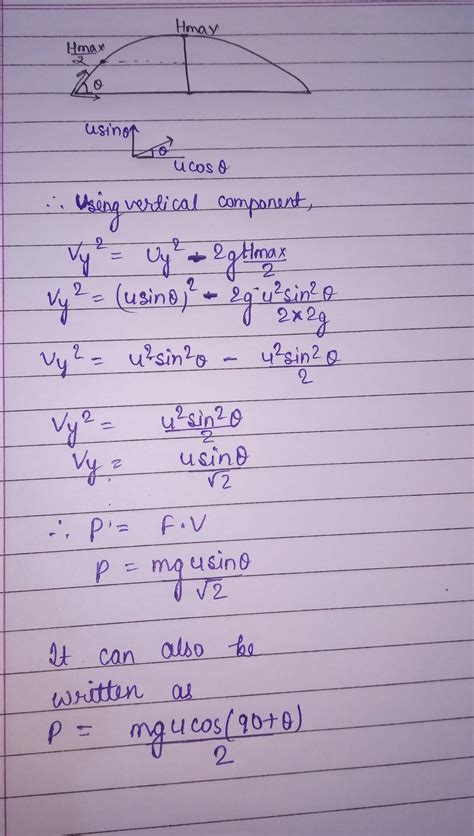 Hmax
Hmax/2
θ
usinθ
θ
ucosθ
∴ Using vertical component,
Vy² = Uy² - 2g Hmax/2
Vy² = (usinθ)² - 2g u²sin²θ/2×2g
Vy² = u²sin²θ - u²sin²θ/2
Vy² = u²sin²θ/2
Vy = usinθ/√2
∴ P = F·V
P = mgusinθ/√2
It can also be
written as
P = mgucos(90+θ)/2